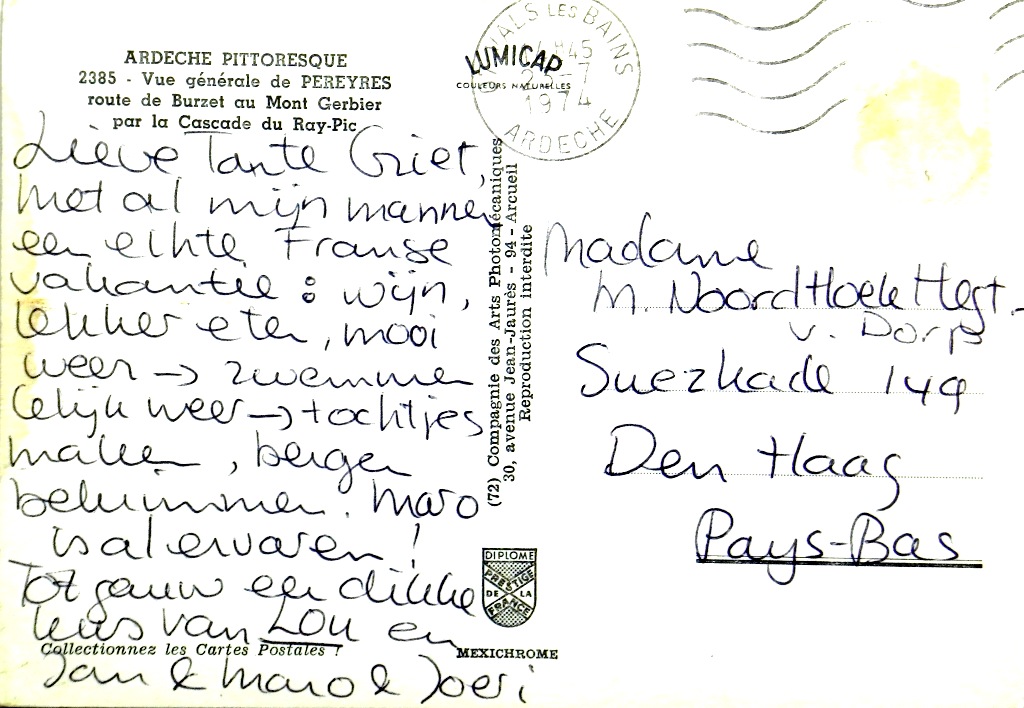 ARDECHE PITTORESQUE
2385 - Vue générale de PEREYRES
route de Burzet au Mont Gerbier
par la Cascade du Ray-Pic
LUMICAP
COULEURS NATURELLES
VALS LES BAINS
1974
ARDECHE
Lieve Tante Griet,
met al mijn mannen
een echte Franse
vakantie : wijn,
lekker eten, mooi
weer → zwemmen
lelijk weer → tochtjes
maken, bergen
beklimmen. Maro
is al ervaren !
Tot gauw een dikke
kus van LOU en
Jan & Maro & Joeri
(72) Compagnie des Arts Photomécaniques
30, avenue Jean-Jaurès - 94 - Arcueil
Reproduction interdite
Madame
M. NoordHoek Hegt.
v. Dorp
Suezkade 149
Den Haag
Pays-Bas
DIPLOME
PRESTIGE
DE LA
FRANCE
Collectionnez les Cartes Postales !
MEXICHROME